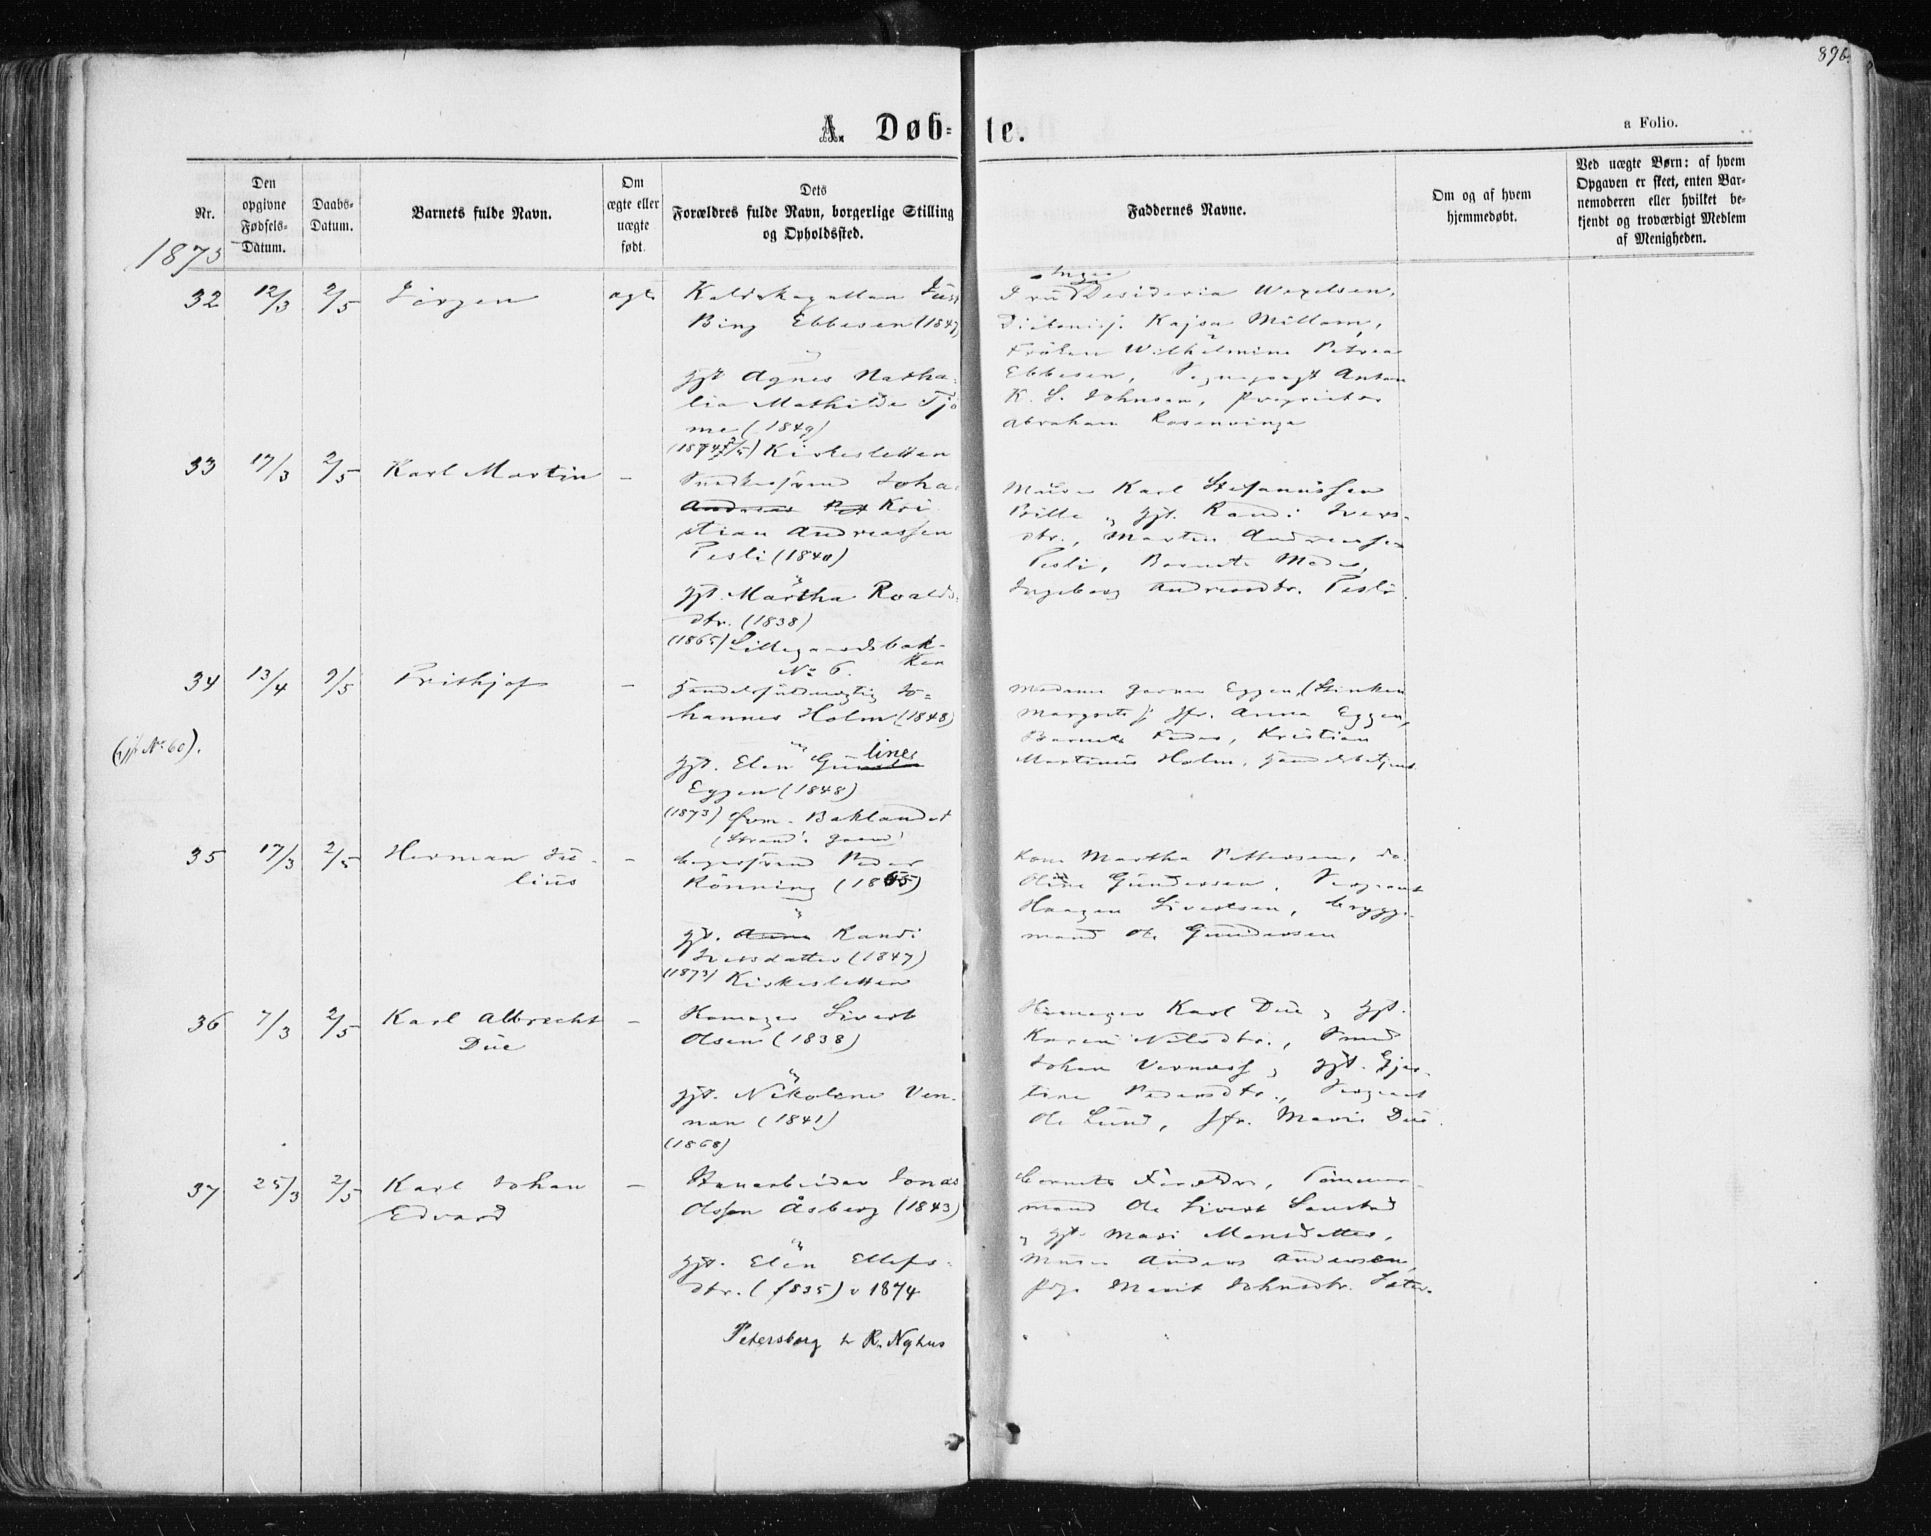 896
A. Døb-te.
a Folio.
Nr.
Den opgivne Fødsels-Datum.
Daabs-Datum.
Barnets fulde Navn.
Om ægte eller uægte født.
Dets Forældres fulde Navn, borgerlige Stilling og Opholdssted.
Faddernes Navne.
Om og af hvem hjemmedøbt.
Ved uægte Børn: af hvem Opgaven er skeet, enten Barnemoderen eller hvilket bekjendt og troværdigt Medlem af Menigheden.
1875
32 12/3 2/5 Jörgen ægte
Bing Ebbesen (1847)
gft Agnes Natha-
lia Mathilde Tjö
me (1849)
Kirkesletten
Inga
Fru Desideria Wexelsen,
Kajsa Millom,
Fröken Wilhelmine Petrea
Ebbesen, Anton
K. S. Johnsen, proprietær
Abraham Rosenvinge
33 17/3 2/5 Karl Martin -
Snedkersvend Joha
Andreas Kri
stian Andreassen
Pesli (1840)
gft. Märtha Roalds-
dtr. (1838)
(1865) Lillegaardsbak-
No 6. ken
Murer Karl Stefanussen
Brille og gft. Randi Ivers-
dtr., Martin Andreassen
Pesli, Barnets Moder,
Ingeborg Andreasdtr. Pesli.
34 13/4 9/5 Frithjof -
(gft No 60).
Handelsfuldmægtig Jo-
hannes Holm (1848)
gft. Elen lines
Eggen (1848)
(1873) Øvre Baklandet
(Strand. gaard)
Madame Eggen (Enken
Margrete), jfr. Anna Eggen,
Barnets Fader, Kristian
Martinus Holm, Handelsbetjent
35 17/3 2/5 Herman Ju-
lius -
Bagersvend Peder
Rönning (1845)
gft. Anne Randi
Iversdatter (1847)
(1873) Kirkesletten
Kone Martha Pettersen, do.
Oline Gundersen, Sergeant
Haagen Sivertsen, Brygge-
mand Ole Gundersen
36 7/3 2/5 Karl Albrecht
Due -
Homager Sivert
Olsen (1838)
gft. Nikoline Ven-
nan (1841)
(1868)
Homager Karl Due og gft.
Karen Nilsdtr., Smed
Johan Vernæss og gft. Gjer-
tine Pedersdtr., Sergeant
Ole Lund, jfr. Marie Due.
37 25/3 2/5 Karl Johan
Edvard -
Banearbeider Jonas
Olssøn Åsberg (1843)
gft. Elen Ellefs-
dtr. (1835) v 1874
Petersborg
R. Nyhus
Barnets Forældre, Tömmer-
mand Ole Sivert Saustad
og gft. Mari Monsdatter,
Murer Anders Andersen,
pige Marit Johnsdtr. Sæter.